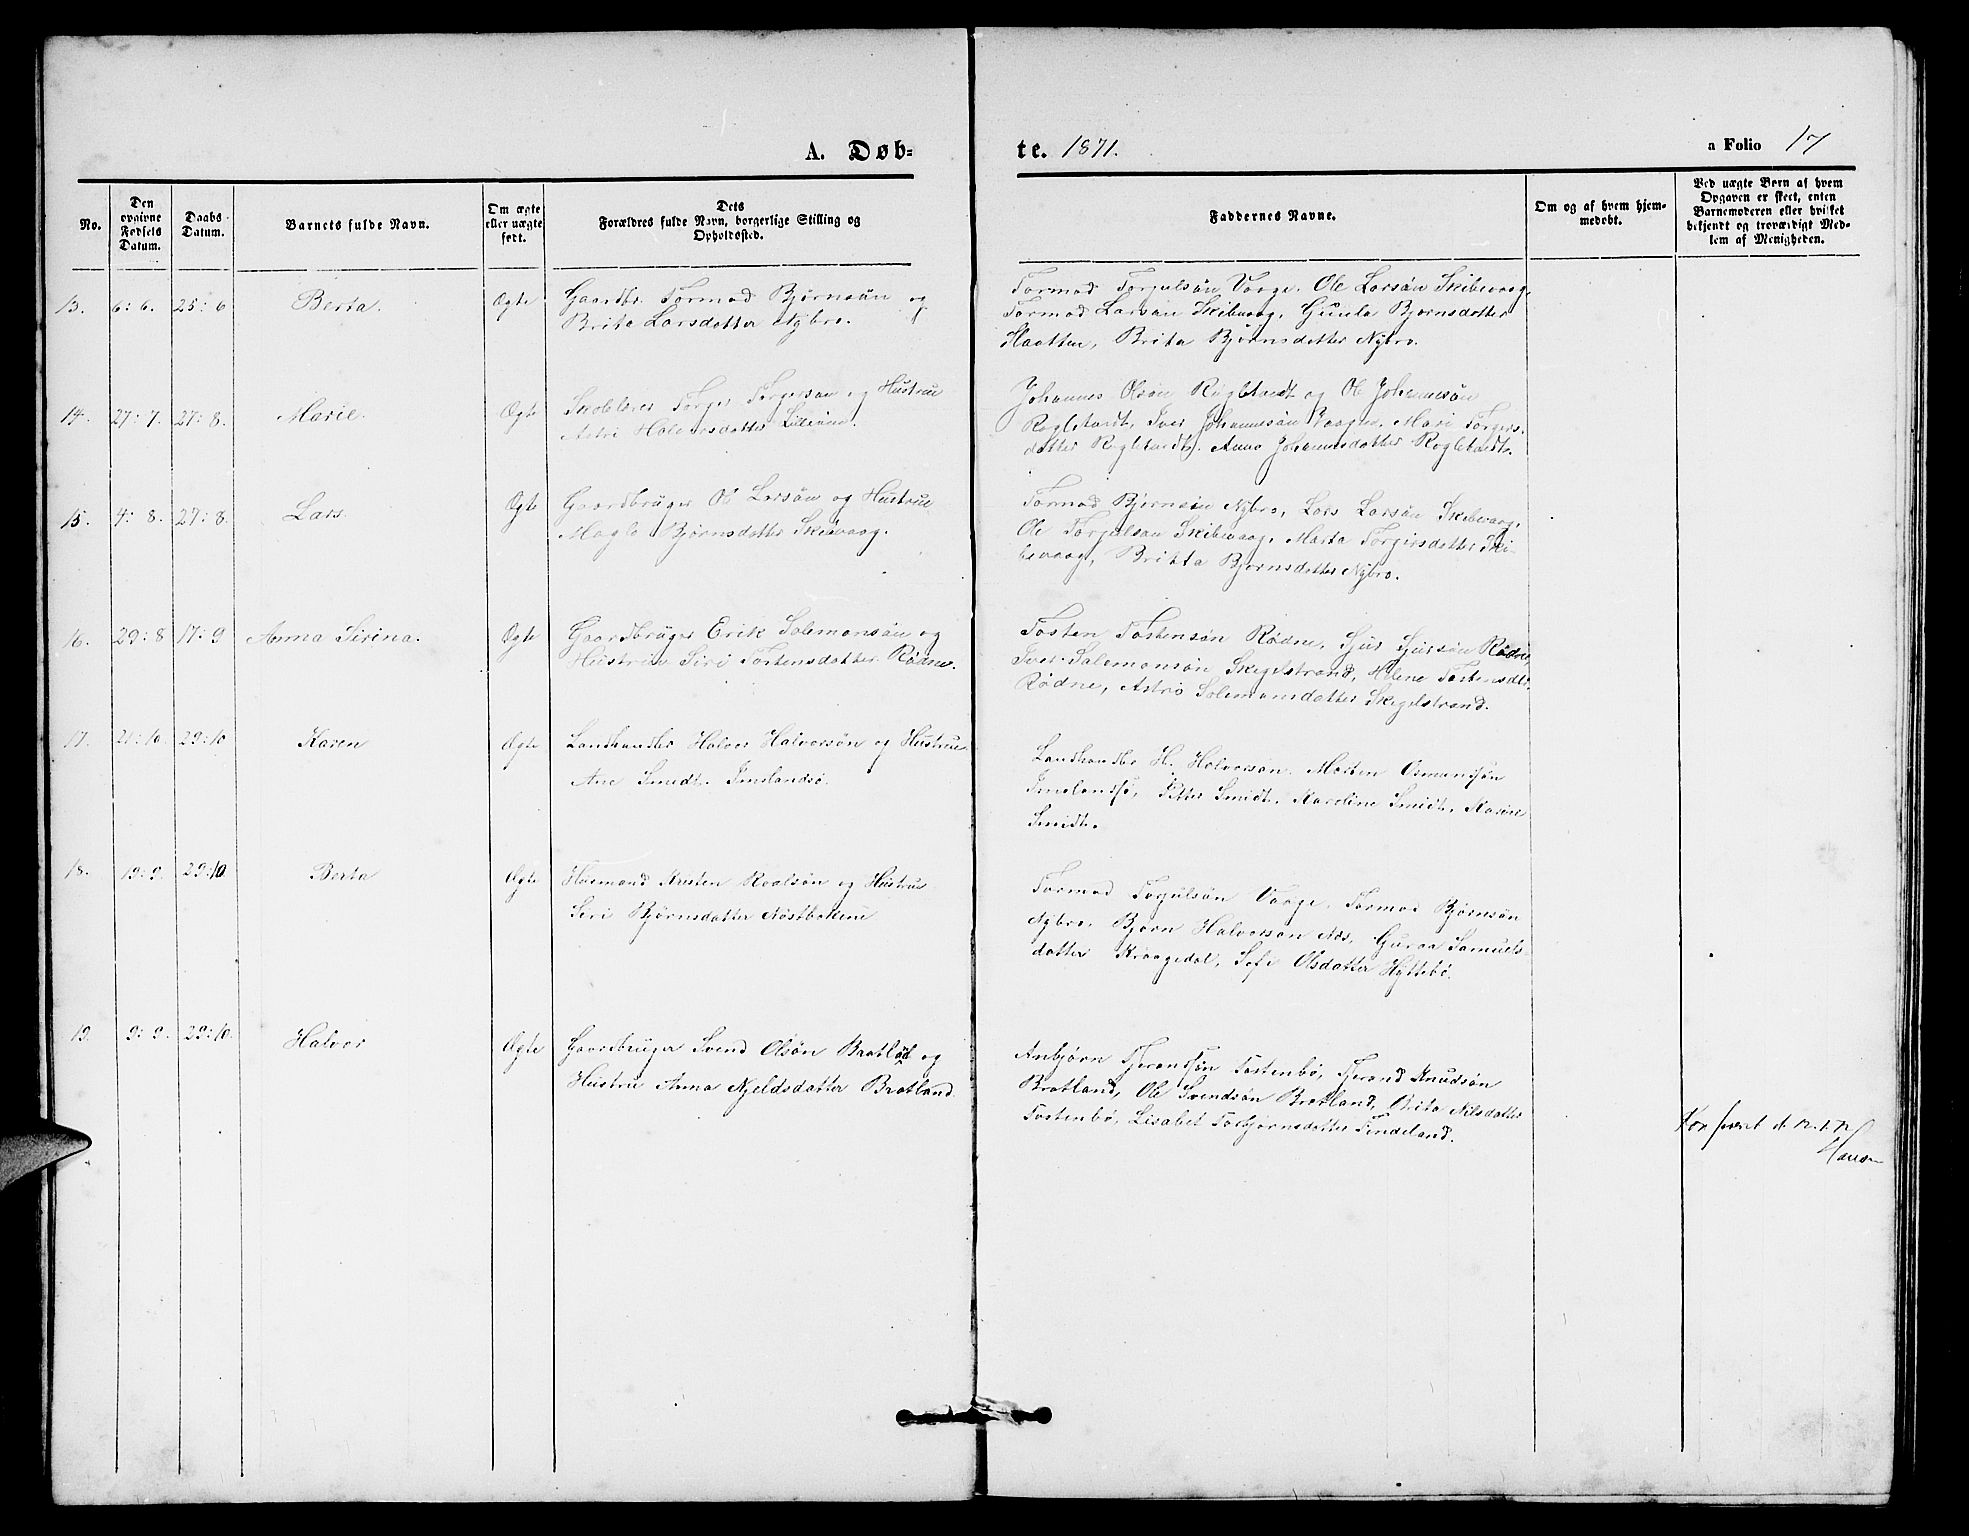 A. Døb=
te. 1871.
a Folio 17
No.
Den opgivne Fødsels Datum.
Daabs Datum.
Barnets fulde Navn.
Om ægte eller uægte født.
Dets Forældres fulde Navn, borgerlige Stilling og Opholdssted.
Faddernes Navne.
Om og af hvem hjemmedøbt.
Ved uægte Børn af hvem Opgaven er skeet, enten Barnemoderen eller hvilket bekjendt og troværdigt Medlem af Menigheden.
13. 6: 6. 25: 6 Berta. Ægte
Gaardbr. Tormod Bjørnsøn og
Brita Larsdatter Nybro.
Tormod Torjulsøn Vaage. Ole Larsøn Skibevaag,
Tormod Larsøn Skibevaag, Gunla Bjørnsdatter
Haatten, Brita Bjørnsdatter Nybro.
14. 27: 7. 27: 8. Marie. Ægte
Torger Torgersøn og Hustrue
Astri Halvorsdatter
Johannes Olsøn og Ole Johannesøn
Iver Johannesøn Mari Torgers-
datter Anna Johannesdatter
15. 4: 8. 27: 8. Lars. Ægte
Gaardbrüger Ole Larsøn og Hustrue
Magla Bjørnsdatter Skibevaag.
Tormod Bjørnsøn Nybro, Lars Larsøn Skibevaag,
Ole Torjulsøn Skibevaag, Marta Torgersdatter Ski-
bevaag, Britta Bjørnsdatter Nybro.
16. 29: 8 17: 9 Anna Sirina. Ægte
Gaardbrüger Erik Salemonsøn og
Hustrüe Siri Tostensdatter Rødne.
Tosten Tostensøn Rødne, Sjur Sjursøn Rødne,
Iver Salemonsøn Skegelstrand, Helene Tostensdtr.
Rødne, Astri Salemonsdatter Skegelstrand.
17. 21: 10. 29: 10 Karen Ægte
Landhandler Halvor Halvorsøn og Hustrue
Ane Smidt. Imslandsø.
Landhandler H. Halvorsøn. Morten Osmundsøn
Imslandsø, Petter Smidt, Karoline Smidt, Karine
Smidt.
18. 19: 9. 29: 10. Berta Ægte
Huusmand Kristen Roalsøn og Hustrue
Siri Bjørnsdatter Nøstbakene
Tormod Torjulsøn Vaage, Tormod Bjørnsøn
Nybro, Bjørn Halvorsøn Næs, Guroa Samuels-
datter Kraagedal, Sefi Olsdatter Hyttebø.
19. 9: 9. 29: 10. Halvor Ægte
Gaardbruger Svend Olsøn Bratland og
Hustru Anna Kjeldsdatter Bratland.
Anbjørn Tjerandsøn Tostenbø, Tjerand Knudsøn
Bratland, Ole Svendsøn Bratland, Brita Nilsdatter
Tostenbø, Lisabet Tobjørnsdatter Tindeland.
Konfereret d.